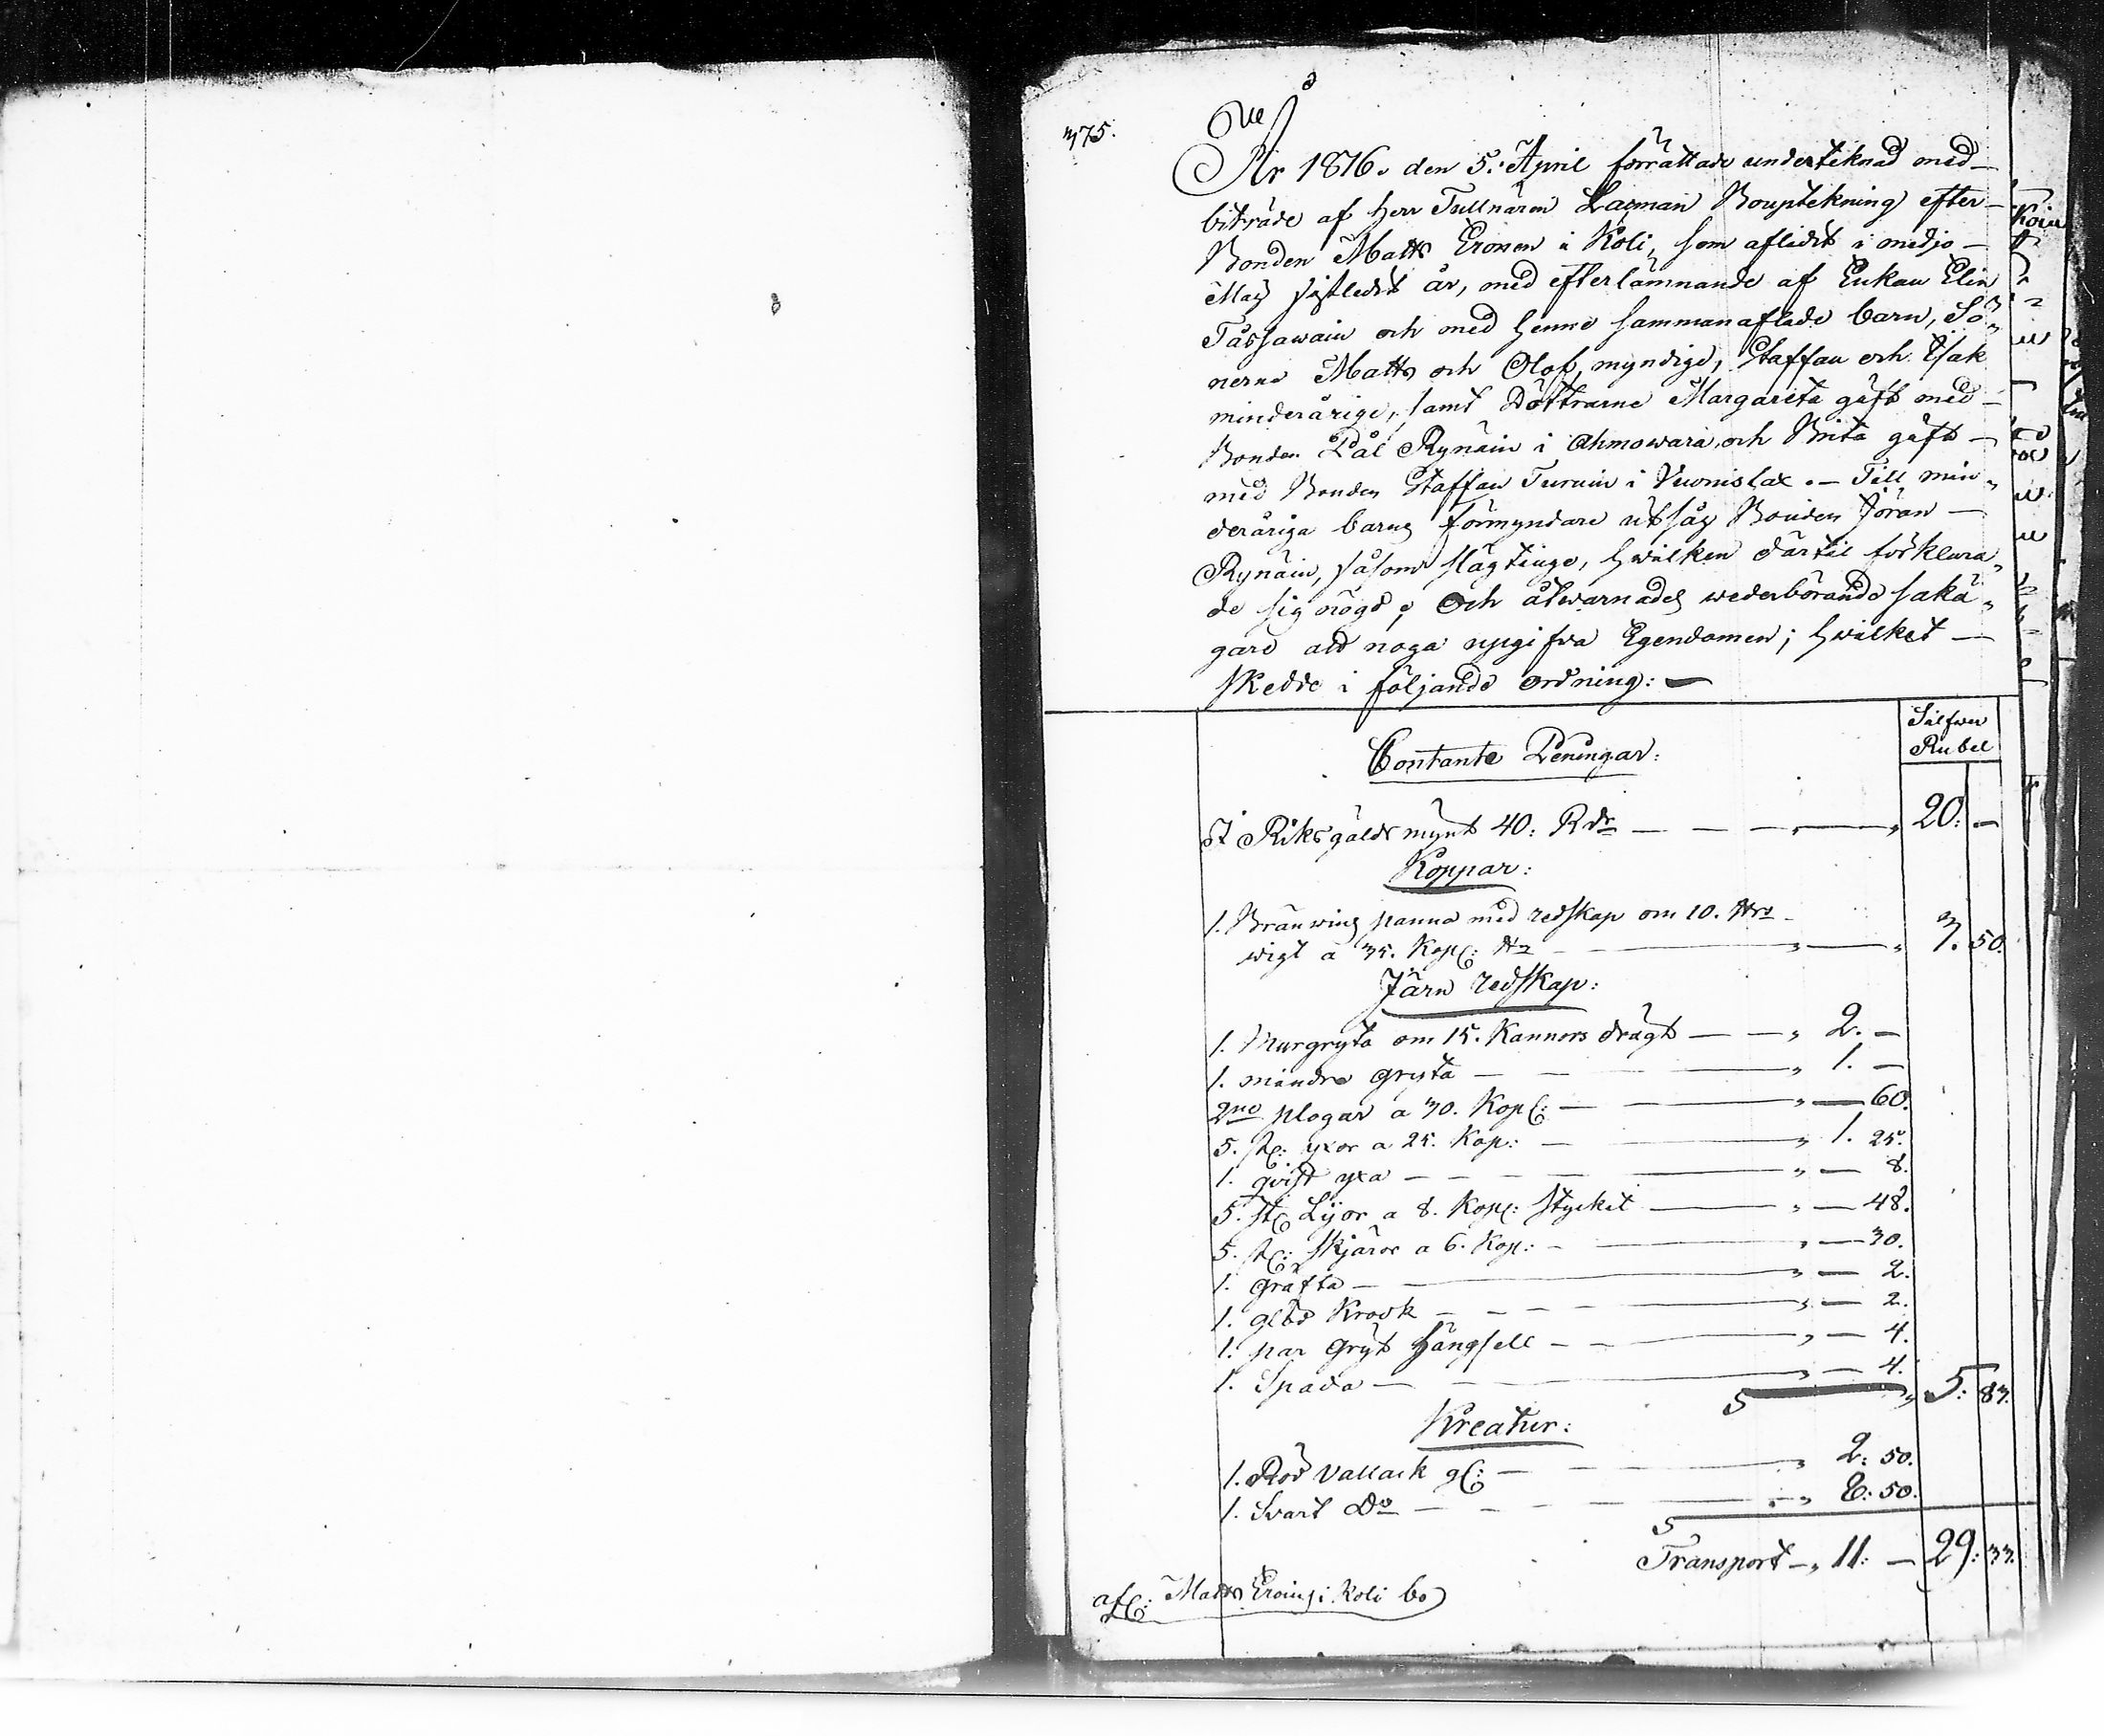 375.
År 1816. den 5. April förrättade underteknad med
biträde af Herr Tullnären Lasman Bouptekning efter
Bonden Matts Eronen i Koli, som aflidit i medjo
Maij sistledit år, med efterlämnande af Enkan Elin
Tåssawain och med henne sammanaflade barn, Sö„
nerne Matts och Olof, myndige, Staffan och Isak
minderårige, samt Döttrarne Margareta gift med
Bonden Pål Rynäin i Ahmowara, och Brita gift
med Bonden Staffan Turuin i Vuonislax. Till min„
deråriga barns förmyndare utsåg Bonden Jöran
Rynäin, såsom slägtinge, hwilken därtil förklara„
de sig nögd, och åtwarnades wederbörande sakä„
gare att noga uppgifwa Egendomen; hwilket
skedde i följande ordning:
Silfwer
Rubel
Contante Peningar:
I Riksgälds mynt 40: Rdr — — — 20: —
Koppar:
1. Bränwins panna med redskap om 10. ℔
wigt a 35. Kop: ℔ — — 3. 50.
Järn redskap:
1. Murgryta om 15. Kannors drägt — — 2. —
1. mindre gryta — — — 1. —
2ne plogar a 30. Kop: — — — 60.
5. st: yxor a 25. Kop: — — 1. 25.
1. qvist yxa — — — — 8.
5. st: Lijor a 8. Kop: stycket — — 48.
5. st: skjäror a 6. Kop: — — — 30.
1. gräfta — — — 2.
1. glöd Krock — — — — 2.
1. par gryt hängsell — — — 4.
1. Spada — — — 4.
S 5: 83.
Kreatur:
1. Röd Vallack gl: — — 2: 50.
1. Svart Do — — — 8: 50.
S
Transport — 11: — 29: 33.
afl: Matts Eroins i Koli bo